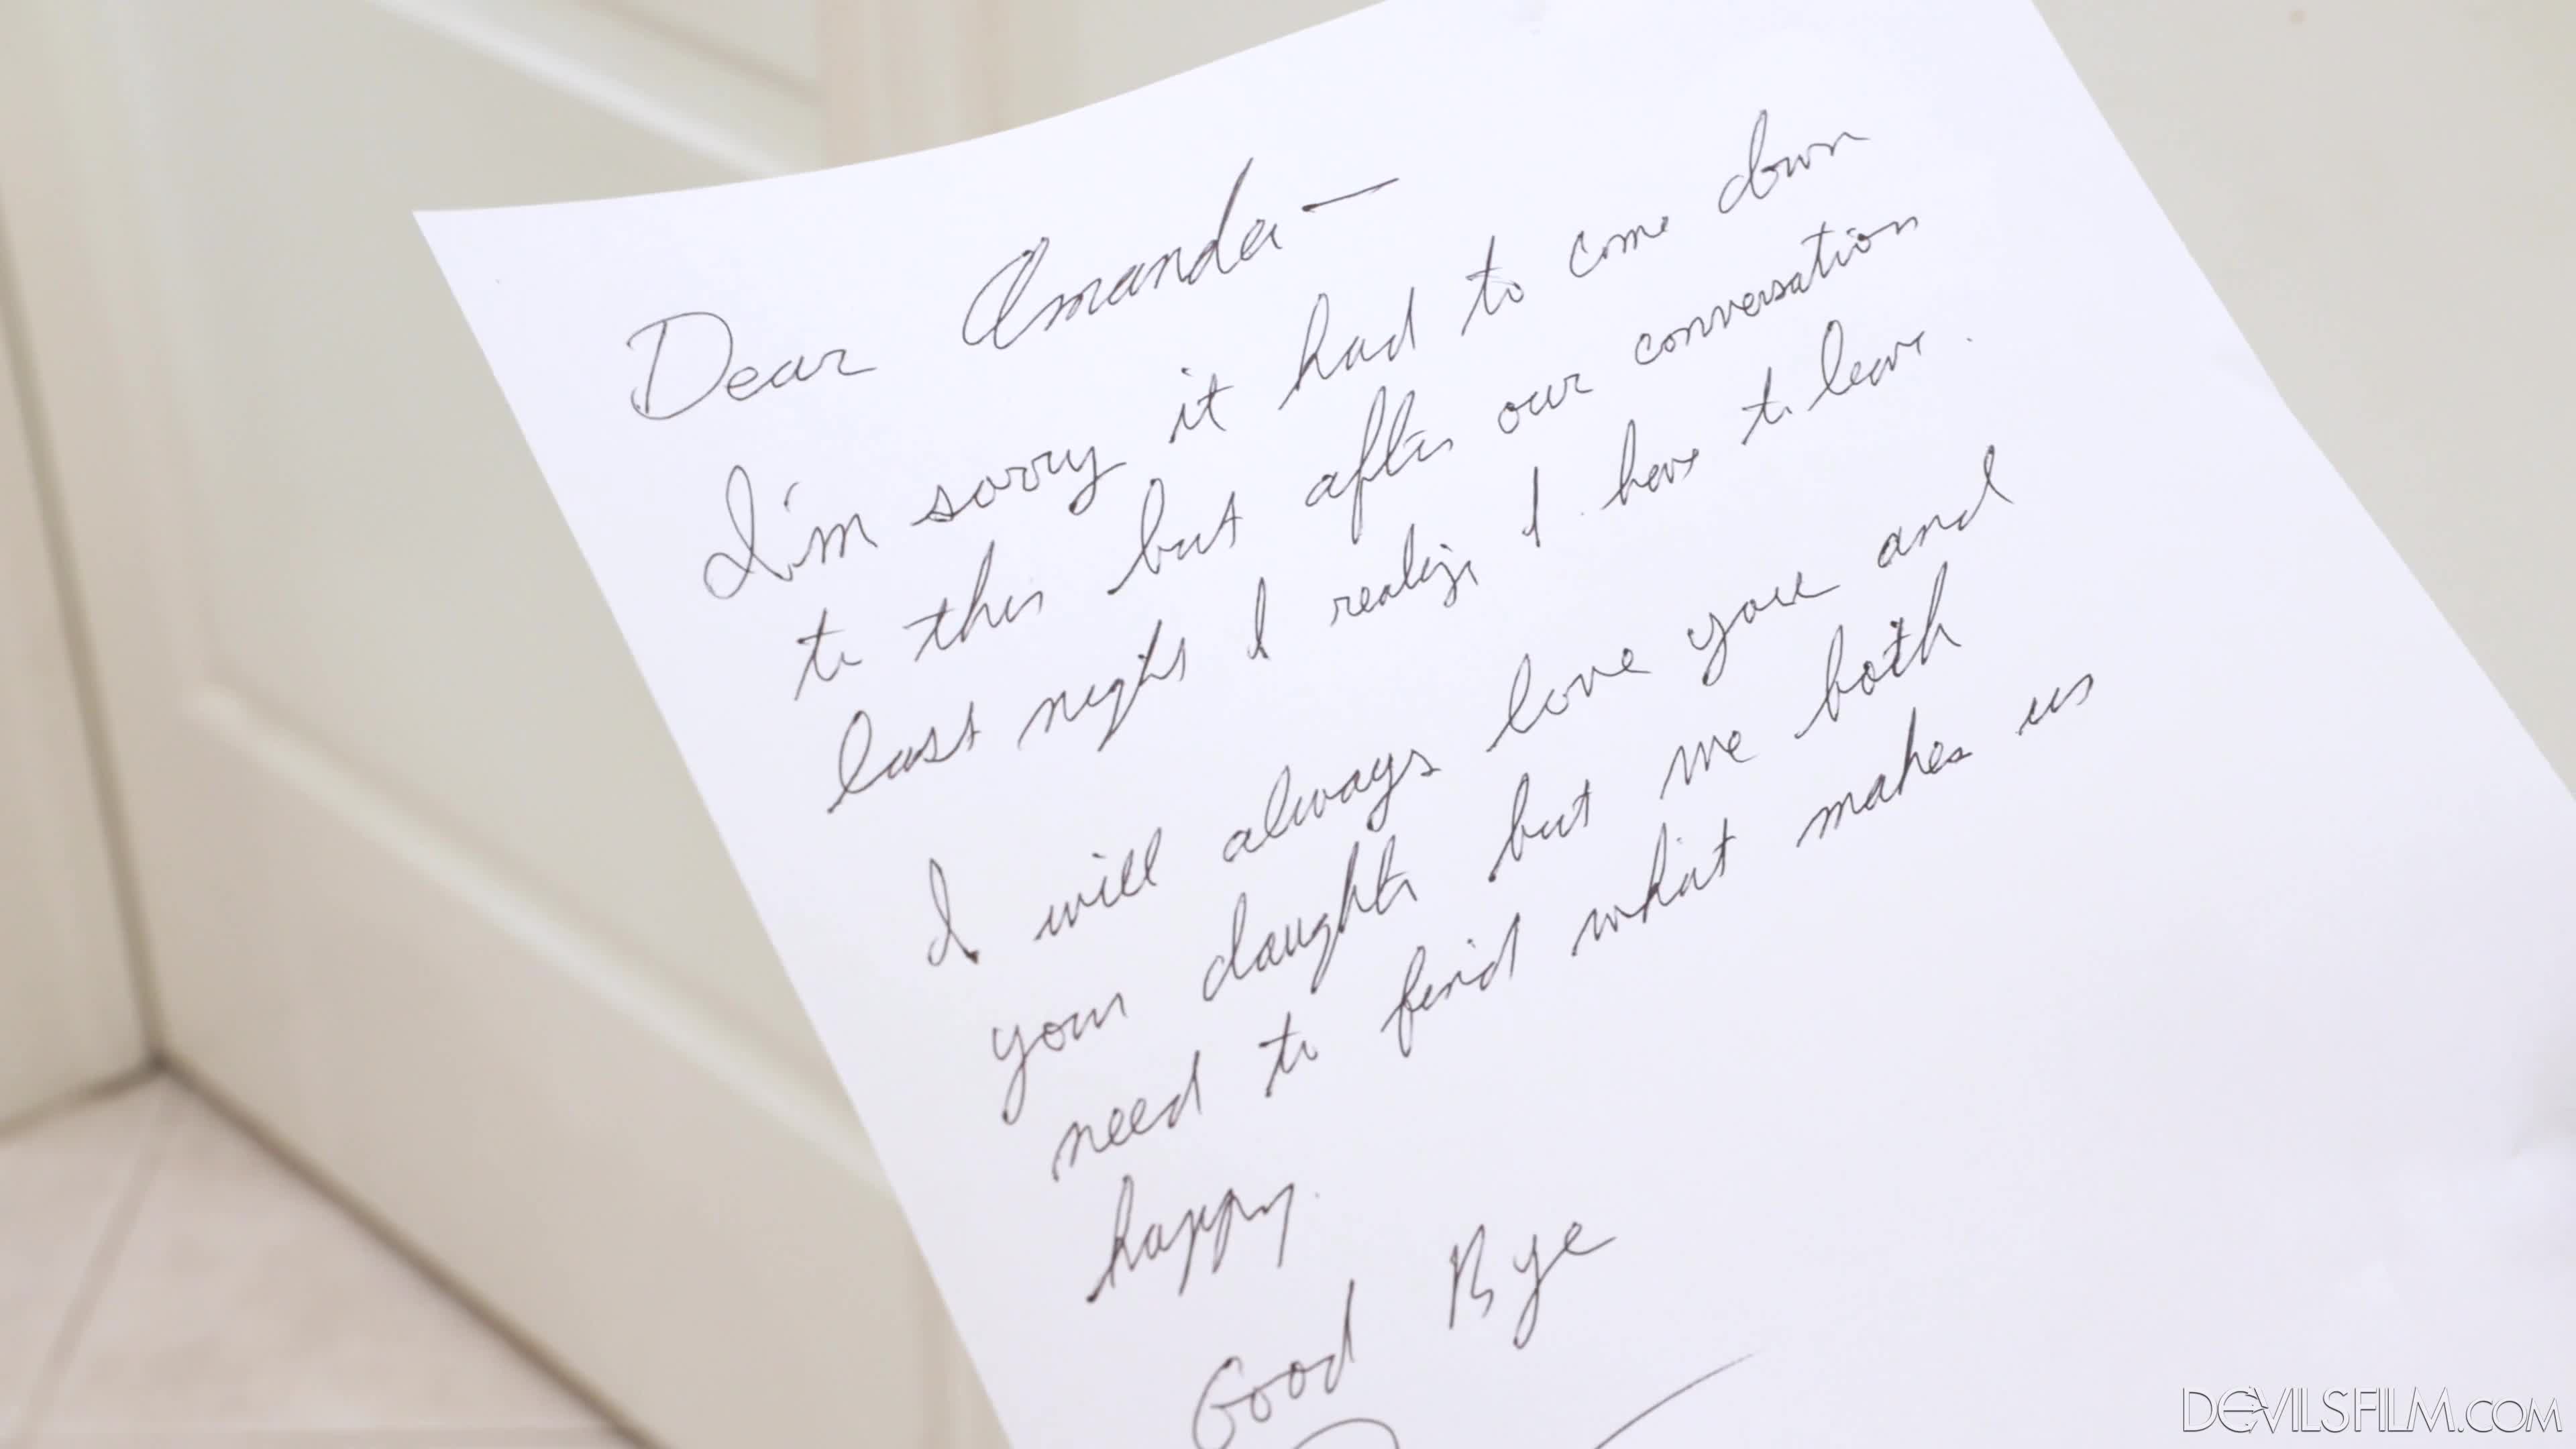 Dear Amanda—
I'm sorry it had to come down
to this but after our conversation
last night I realize I have to leave.
I will always love you and
your daughter but we both
need to find what makes us
happy.
Good Bye
DEVILSFILM.COM